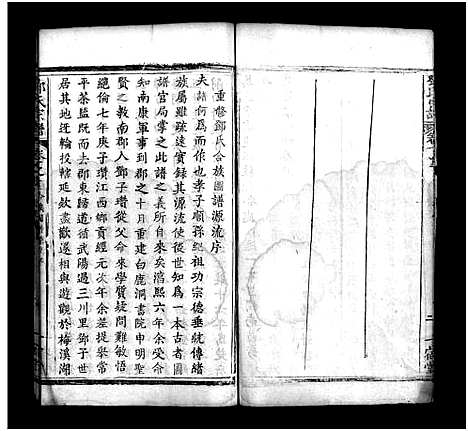 重修鄧氏合族圖譜源流序
夫譜何爲而作也孝子順孫紀祖功宗德垂統傳緒
族屬雖疏遠實録其源流使後世知爲一本古者圖
譜官掌之此譜之義所自來矣淳熙六年余受命
知南康軍事到郡之十月重建白鹿洞書院申明聖
賢之教南郡人鄧子瓚從父命來學質疑問難敏悟
絶倫七年庚子瓚江西鄉貢經元次年余差提舉常
平茶監既而去郡東歸道循武陽過三川里鄧子世
居其地迂輪投轄延欵盡歡遂相與遊觀於梅溪湖
鄧氏宗譜